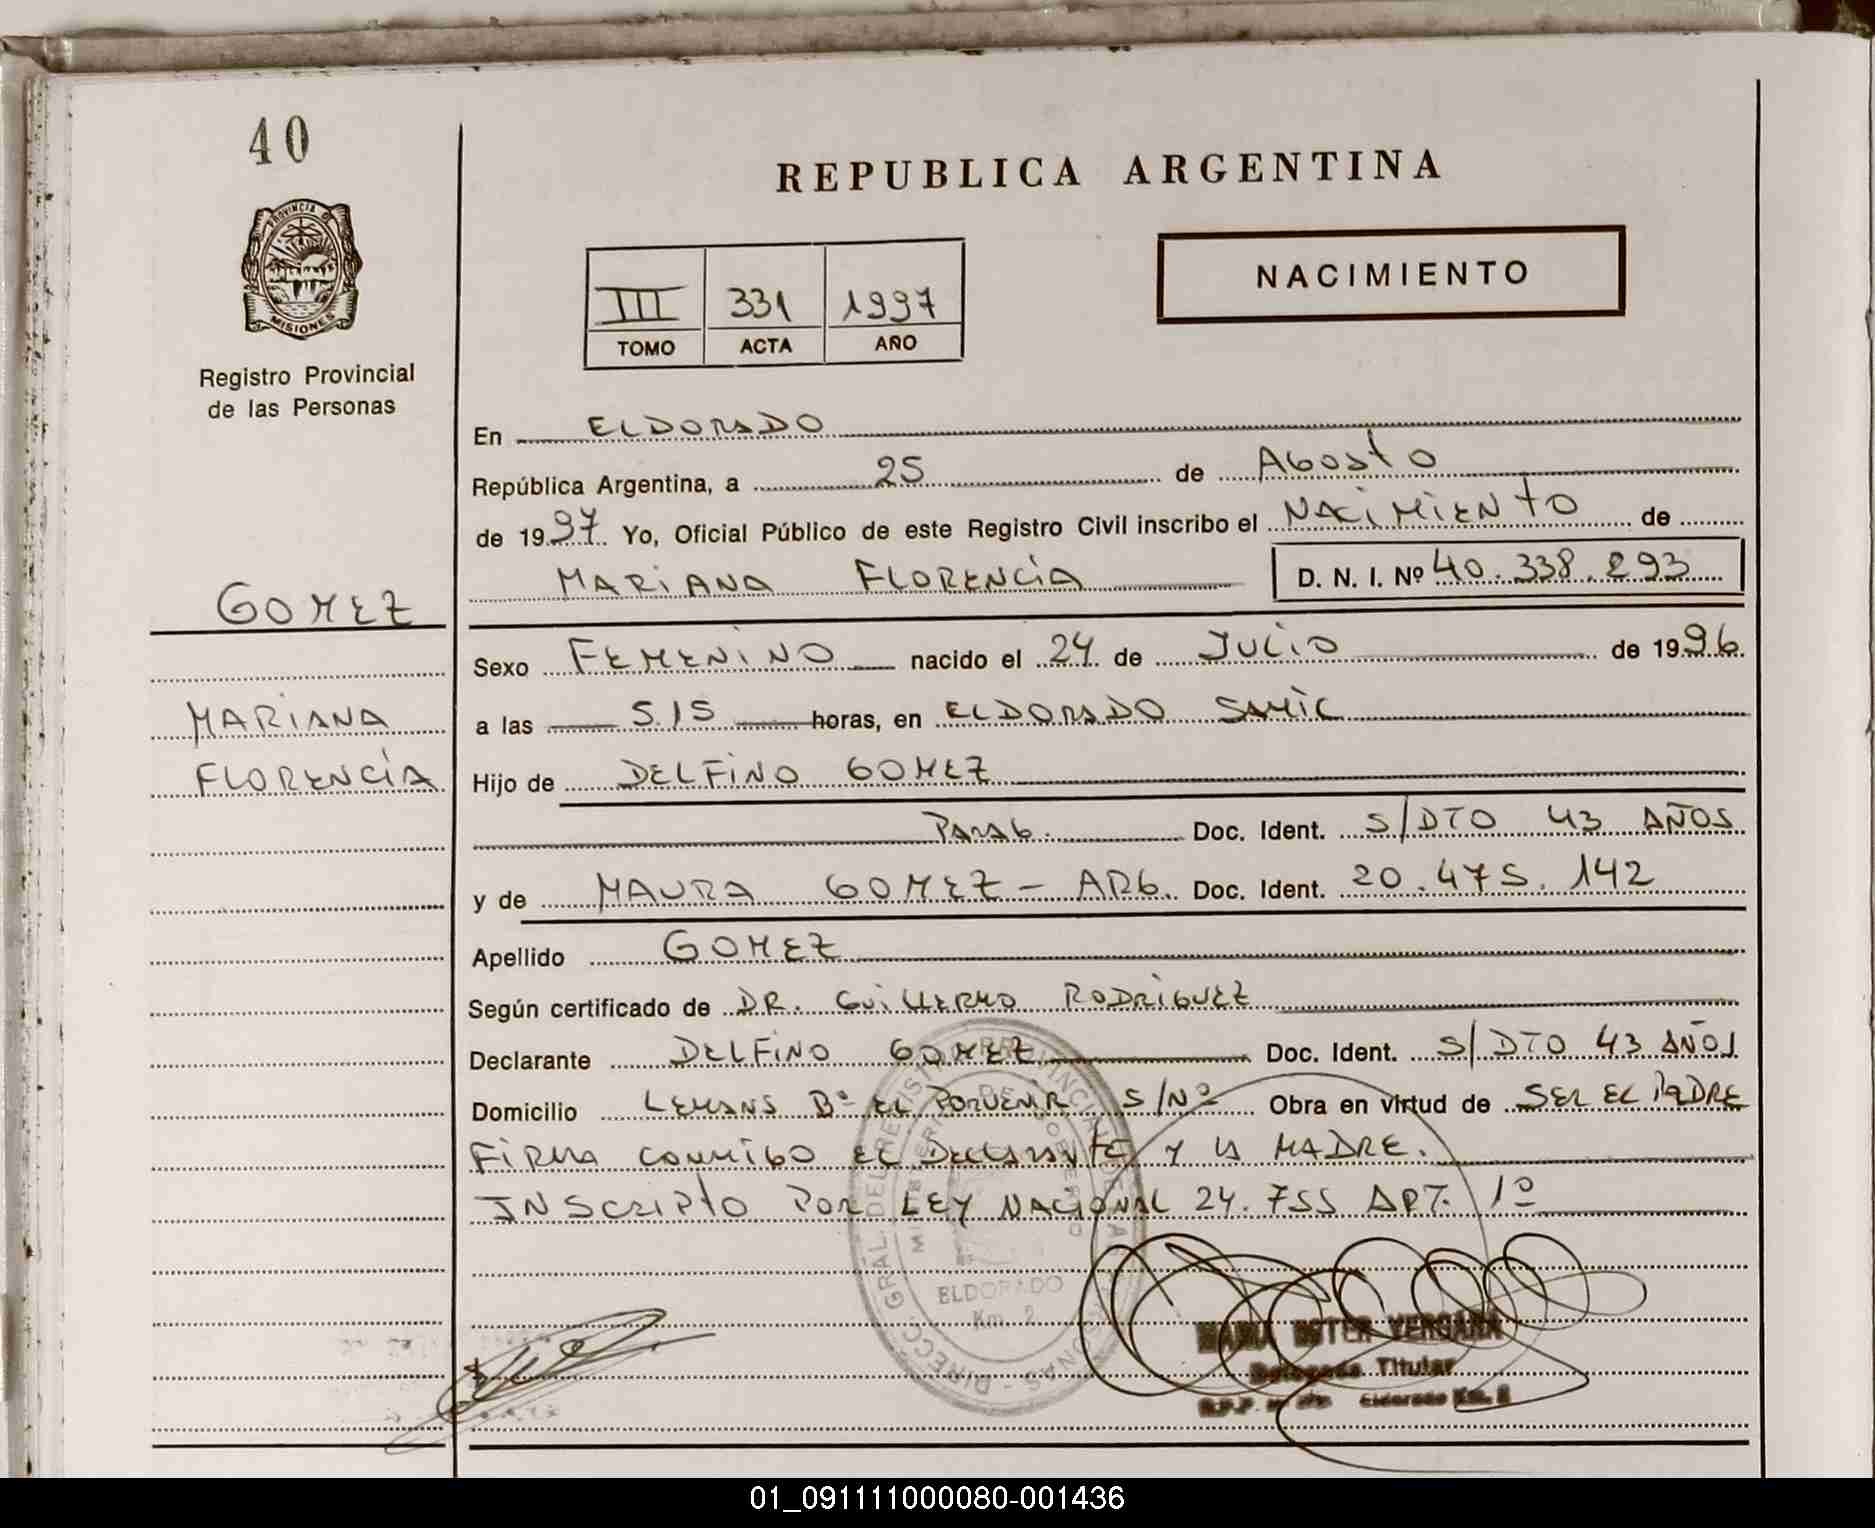 40
PROVINCIA DE
MISIONES
Registro Provincial
de las Personas
REPUBLICA ARGENTINA
NACIMIENTO
III 331 1997
TOMO ACTA AÑO
En ELDORADO
República Argentina, a 25 de Agosto
de 1997 Yo, Oficial Público de este Registro Civil inscribo el NACIMIENTO de
MARIANA FLORENCIA D. N. I. Nº 40.338.293
GOMEZ
MARIANA
FLORENCIA
Sexo FEMENINO nacido el 24 de JULIO de 1996.
a las 5.15 horas, en ELDORADO SAMIC
Hijo de DELFINO GOMEZ
PARAG. Doc. Ident. S/DTO 43 AÑOS
y de MAURA GOMEZ - ARG. Doc. Ident. 20.475.142
Apellido GOMEZ
Según certificado de DR. GUILLERMO RODRIGUEZ
Declarante DELFINO GOMEZ Doc. Ident. S/DTO 43 AÑOS
Domicilio LEMANS Bº EL PORVENIR S/Nº Obra en virtud de SER EL PADRE
FIRMA CONMIGO EL DECLARANTE Y LA MADRE.
INSCRIPTO POR LEY NACIONAL 24.755 ART. 1º
ELDORADO
Km. 2
VERGARA
Delegada Titular
R.P.P. Eldorado Km. 2
01_091111000080-001436